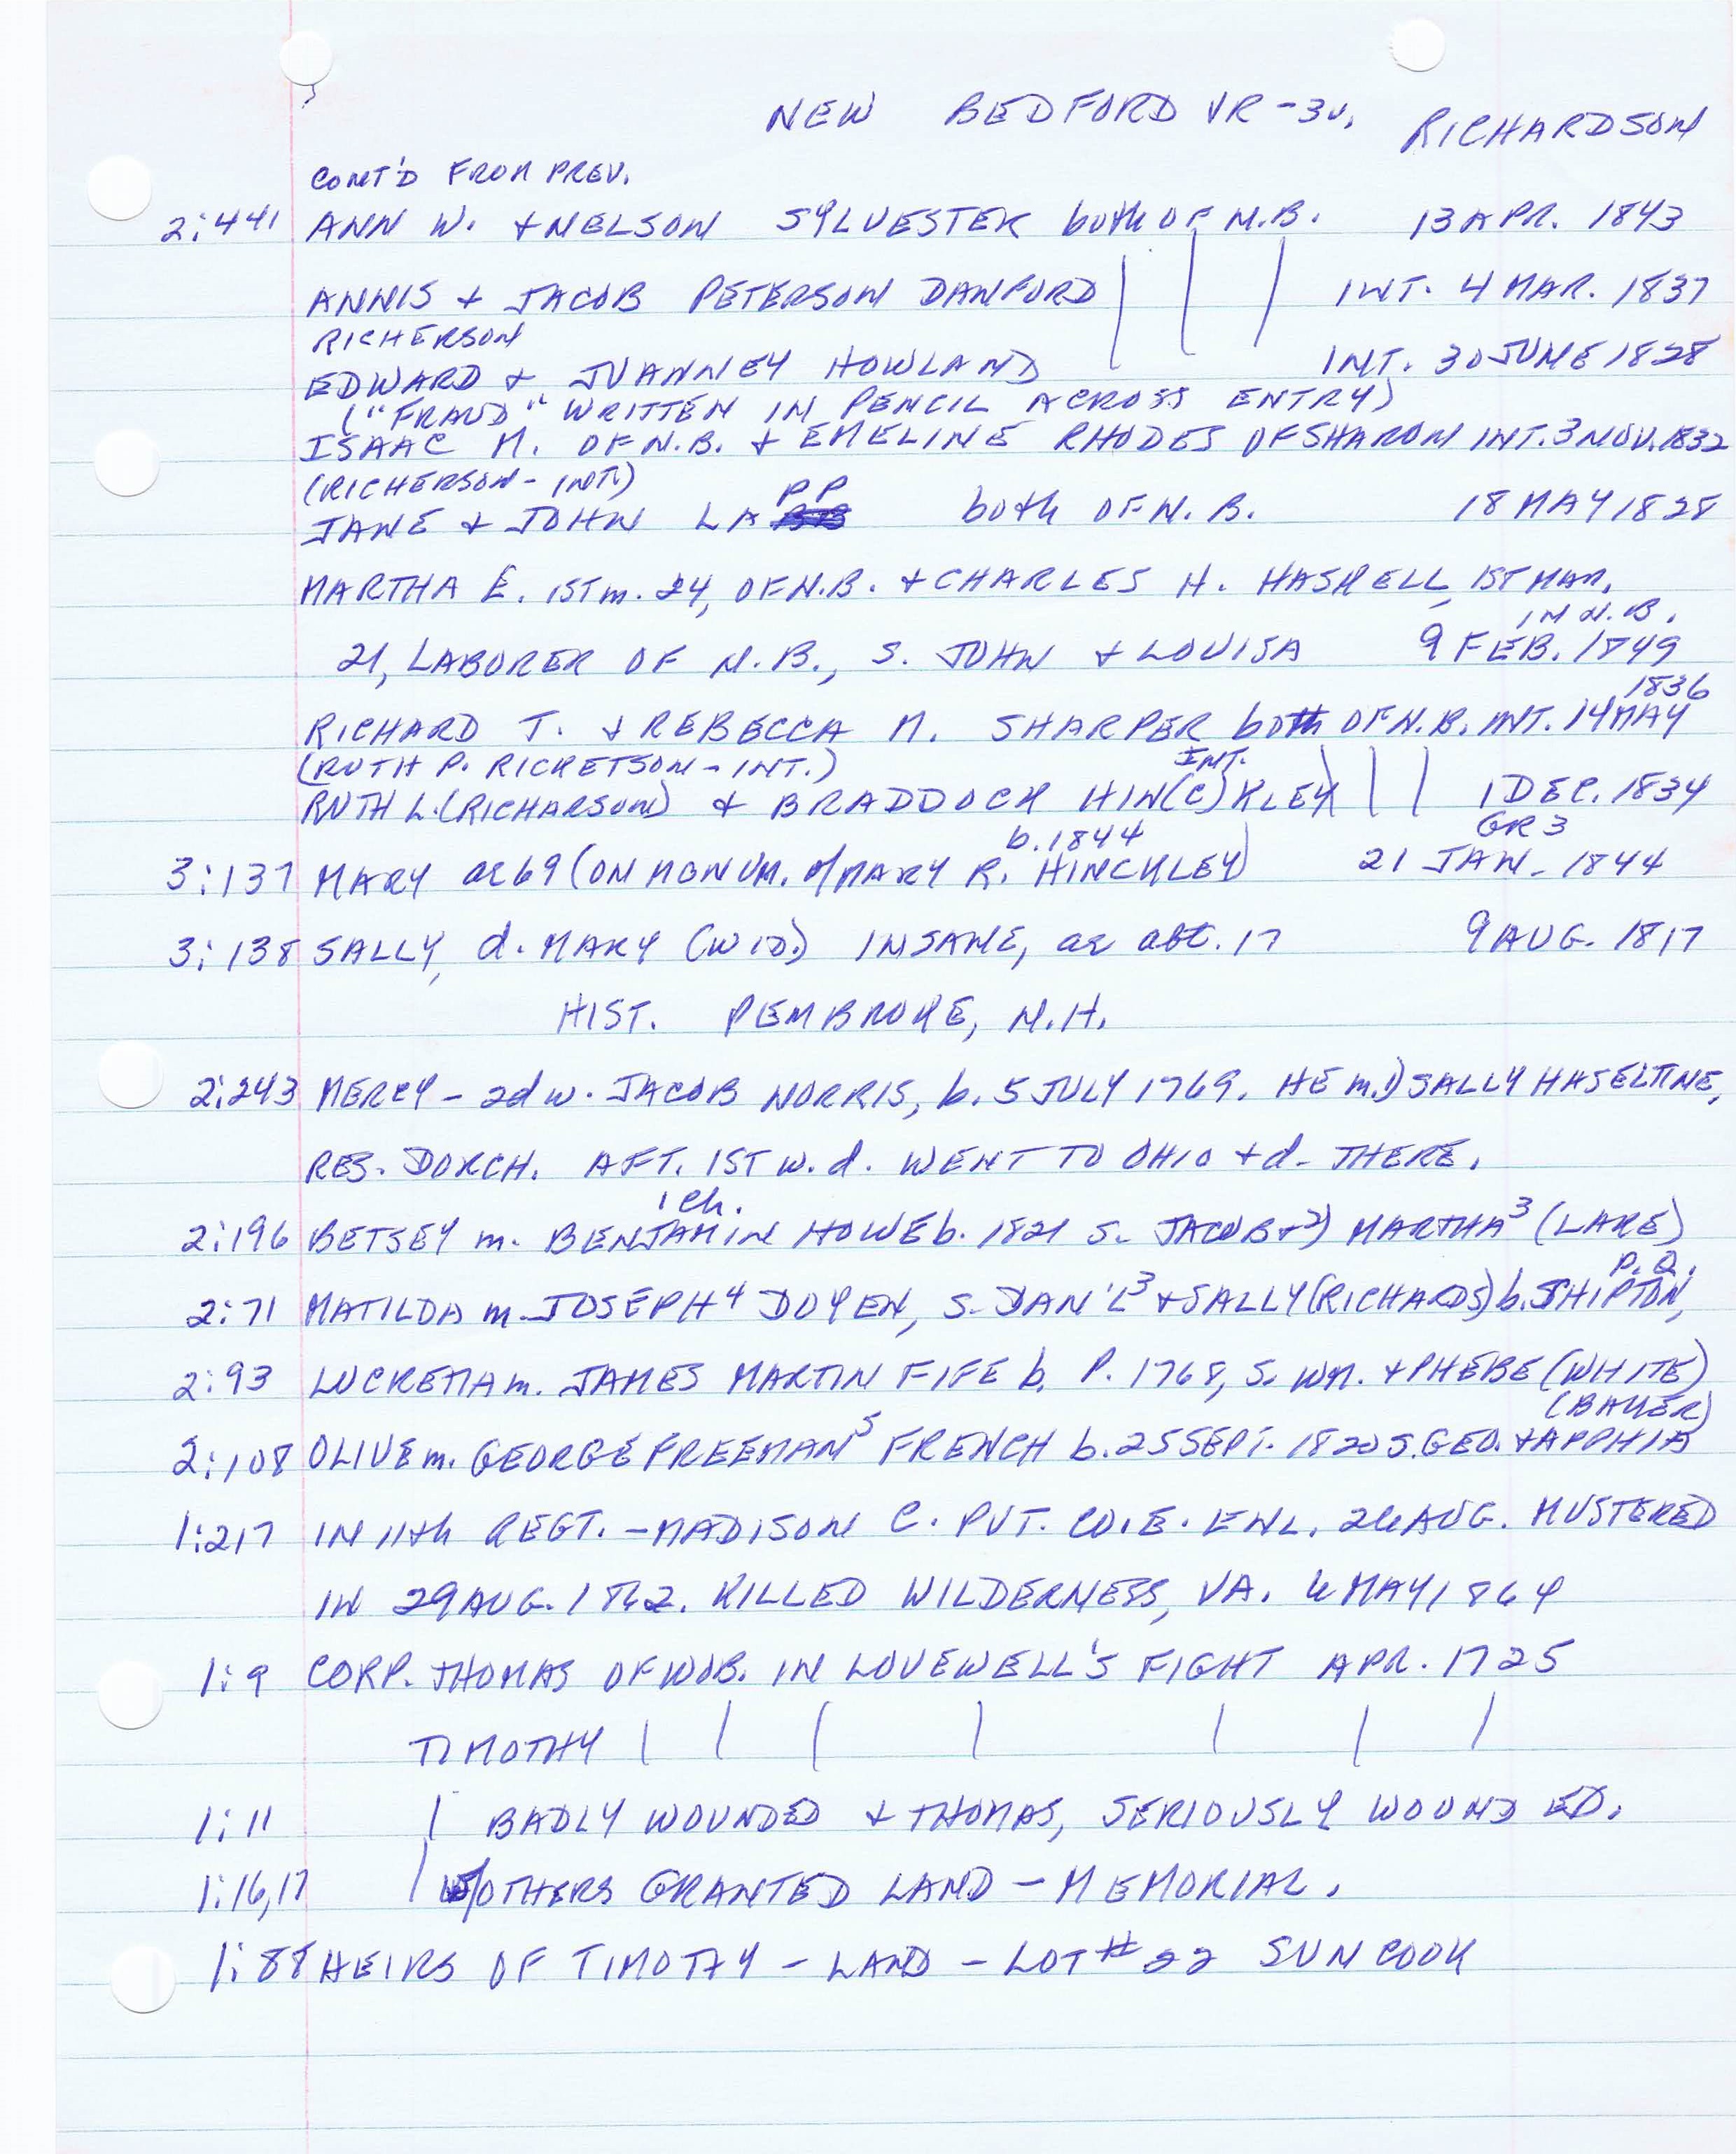 NEW BEDFORD VR-3v. RICHARDSON
CONT'D FROM PREV.
2:441 ANN W. + NELSON SYLVESTER both OF N.B. 13 APR. 1843
ANNIS + JACOB PETERSON DANFORD | | | INT. 4 MAR. 1837
RICHERSON
EDWARD + JUANNEY HOWLAND INT. 30 JUNE 1828
("FRAUD" WRITTEN IN PENCIL ACROSS ENTRY)
ISAAC M. OF N.B. + EMELINE RHODES OF SHARON INT. 3 NOV. 1832
(RICHERSON - INT.)
JANE + JOHN LAPP both OF N.B. 18 MAY 1828
MARTHA E. 1ST m. 24, OF N.B. + CHARLES H. HASKELL, 1ST MAR.
IN N.B.
21, LABORER OF N.B., S. JOHN + LOUISA 9 FEB. 1849
1836
RICHARD T. + REBECCA M. SHARPER both OF N.B. INT. 14 MAY
(RUTH P. RICKETSON - INT.) INT.
RUTH L. (RICHARSON) + BRADDOCK HIN(C)KLEY | | | 1 DEC. 1834
b. 1844 GR 3
3:137 MARY ae 69 (ON MONUM. w/ MARY R. HINCKLEY) 21 JAN. 1844
3:138 SALLY, d. MARY (WID.) INSANE, ae abt. 17 9 AUG. 1817
HIST. PEMBROKE, N.H.
2:243 MERCY - 2d w. JACOB NORRIS, b. 5 JULY 1769. HE m.1) SALLY HASELTINE,
RES. DORCH. AFT. 1ST w. d. WENT TO OHIO + d. THERE.
1 ch.
2:196 BETSEY m. BENJAMIN HOWE b. 1821 S. JACOB + 2) MARTHA³ (LAKE)
P.Q.
2:71 MATILDA m. JOSEPH⁴ DOYEN, S. DAN'L³ + SALLY (RICHARDS) b. SHIPTON,
2:93 LUCRETIA m. JAMES MARTIN FIFE b. P. 1768, S. WM. + PHEBE (WHITE)
(BAKER)
2:108 OLIVE m. GEORGE FREEMAN⁵ FRENCH b. 25 SEPT. 1820 S. GEO. + APPHIA
1:217 IN 11th REGT. - MADISON C. PVT. CO. E. ENL. 26 AUG. MUSTERED
IN 29 AUG. 1862. KILLED WILDERNESS, VA. 6 MAY 1864
1:9 CORP. THOMAS OF WOB. IN LOVEWELL'S FIGHT APR. 1725
TIMOTHY | | | | | | |
1:11 | BADLY WOUNDED + THOMAS, SERIOUSLY WOUNDED.
1:16,17 | w/OTHERS GRANTED LAND - MEMORIAL.
1:88 HEIRS OF TIMOTHY - LAND - LOT # 22 SUNCOOK